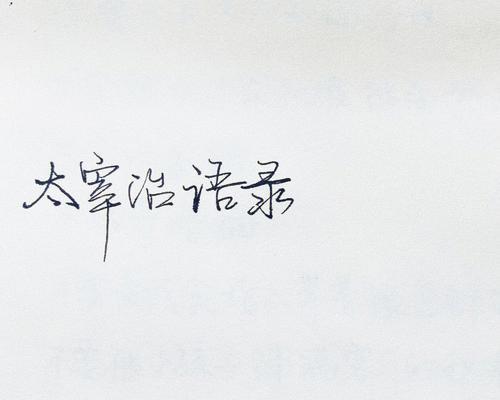 太宰治语录